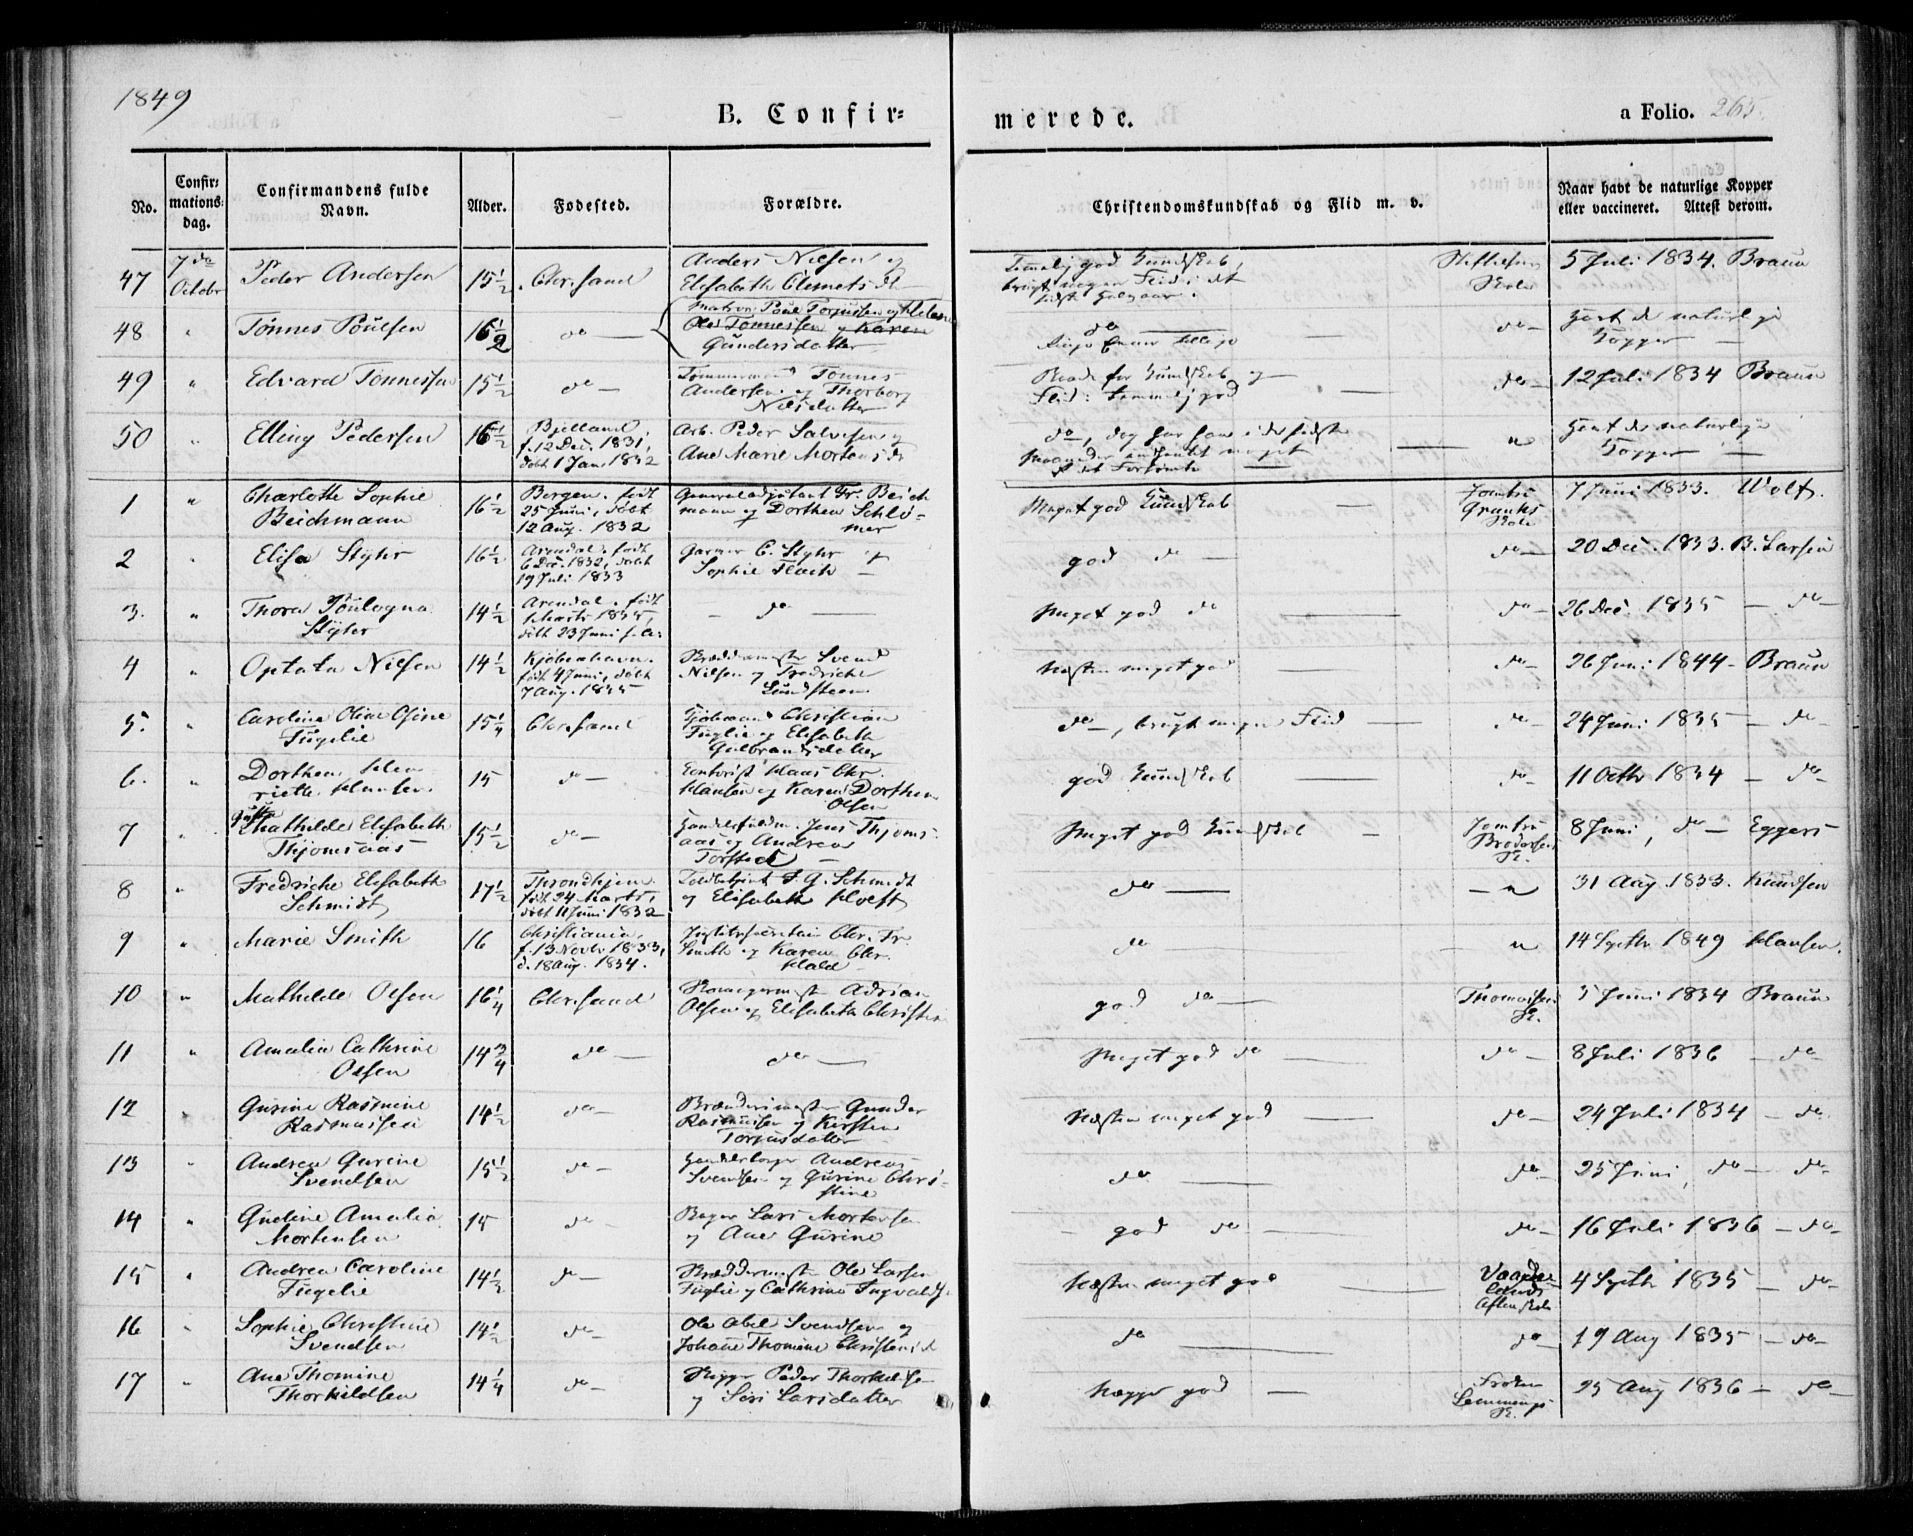 1849
B. Confir=
merede.
a Folio. 265.
No.
Confir=
mations=
dag.
Confirmandens fulde
Navn.
Alder.
Fødested.
Forældre.
Christendomskundskab og Flid m. v.
Naar havt de naturlige Kopper
eller vaccineret. Attest derom.
47 7de Octobr Peder Andersen 15½ Chrsand Anders Nielsen og
Elisabeth Clemetsdt
Temmelig god Kundskab, 5 Juli 1834. Braun
brugt megen Flid i det
sidste Halvaar.
48 " Tønnes Poulsen 16½ do
Ole Tønnessen og Karen
Gundersdatter
do do Havt de naturlige
Kopper
49 " Edvard Tønnessen 15½ do Tømmermand Tønnes
Andersen og Thorborg
Nilsdatter
Flid: temmelig god do 12 Juli 1834 Braun
50 " Elling Pedersen 16½ Bjelland,
f. 12 Dec. 1831,
døbt 1 Jan. 1832
Arb. Peder Salvesen og
Ane Marie Mortensdt
do, dog har han i de sidste
Maaneder indhentet meget
af det Forsømte " Havt de naturlige
Kopper
1 " Charlotte Sophie
Beichmann 16½ Bergen. født
25 Juni, døbt
12 Aug. 1832
Generaladjutant Fr. Beich
mann og Dorthea Schlø-
mer
Meget god Kundskab Jomfru
Skole 7 Juni 1833. Wolf.
2 " Elisa Styhr 16½ Arendal. født
6 Dec. 1832, døbt
19 Juli 1833
Garver C. Styhr og
Sophie Flach
god do do 20 Dec. 1833. B. Larsen
3. " Thora
Styhr 14½ Arendal. født
Marts 1835,
døbt 23 Juni
do Meget god do do 26 Dec. 1835 do
4 " Optata Nilsen 14½ Kjøbenhavn.
født 4 Juni, døbt
7 Aug. 1835
Skræddermester Svend
Nilsen og Fredriche
Lundsteen
Næsten meget god do 26 Juni 1844 Braun
5. " Caroline Oline Osine
Fuglie 15¼ Chrsand Kjøbmand Christian
Fuglie og Elisabeth
Gulbrandsdatter
do, brugt megen Flid do 24 Juni 1835 do
6. " Dorthea Hen
riette Hansen 15 do Contorist Klaus Chr.
Hansen og Karen Dorthea
Olsen
god Kundskab do 11 Octbr 1834 do
7 " Mathilde Elisabeth
Thjomsaas 15½ do Handelsfuldm. Jens Thjoms-
aas og Andrea
Torsted
Meget god Kundskab Jomfru
Brodersens
Sk. 8 Juni, do Eggers
8 " Fredriche Elisabeth
Schmidt 17½ Throndhjem
født 24 Marts,
døbt 11 Juni 1832
Toldbetjent F. G. Schmidt
og Elisabeth Hoeft
do " 31 Aug 1833. Knudsen
9 " Marie Smith 16 Christiania,
f. 13 Novbr 1833,
d. 18 Aug. 1834.
Chr. Fr.
Smith og Karen Chr.
Hald
do " 14 Septbr 1849 Hansen.
10 " Mathilde Olsen 16¼ Chrsand Skomagermester Adrian
Olsen og Elisabeth Christine
god do Sk. 3 Juni 1834 Braun
11 " Amalia Cathrine
Olsen 14¾ do do Meget god do do 8 Juli 1836 do
12 " Gurine Rasmine
Rasmussen 14½ do Brænderimester Gunder
Rasmussen og Kirsten
Torjusdatter
Næsten meget god do 24 Juli 1834 do
13 " Andrea Gurine
Svendsen 15½ do Handelsborger Andreas
Svendsen og Gurine Chri-
stine
do do 25 Juni, do do
14 " Gueline Amalia
Mortensen 15 do Bager Lars Mortensen
og Ane Gurine
god do do 16 Juli 1836 do
15 " Andrea Caroline
Fuglie 14½ do Skræddermester Ole Larsen
Fuglie og Cathrine Ingvaldsd.
Næsten meget god
Aftenskole 4 Septbr 1835 do
16 " Sophie Christine
Svendsen 14½ do Ole Abel Svendsen og
Johanne Thomine Christensd
do do 19 Aug 1835 do
17 " Ane Thomine
Thorkildsen 14¼ do Rigger Peder Thorkildsen
og Siri Larsdatter
Neppe god Frøken
Lemmings
Sk. 25 Aug 1836 do